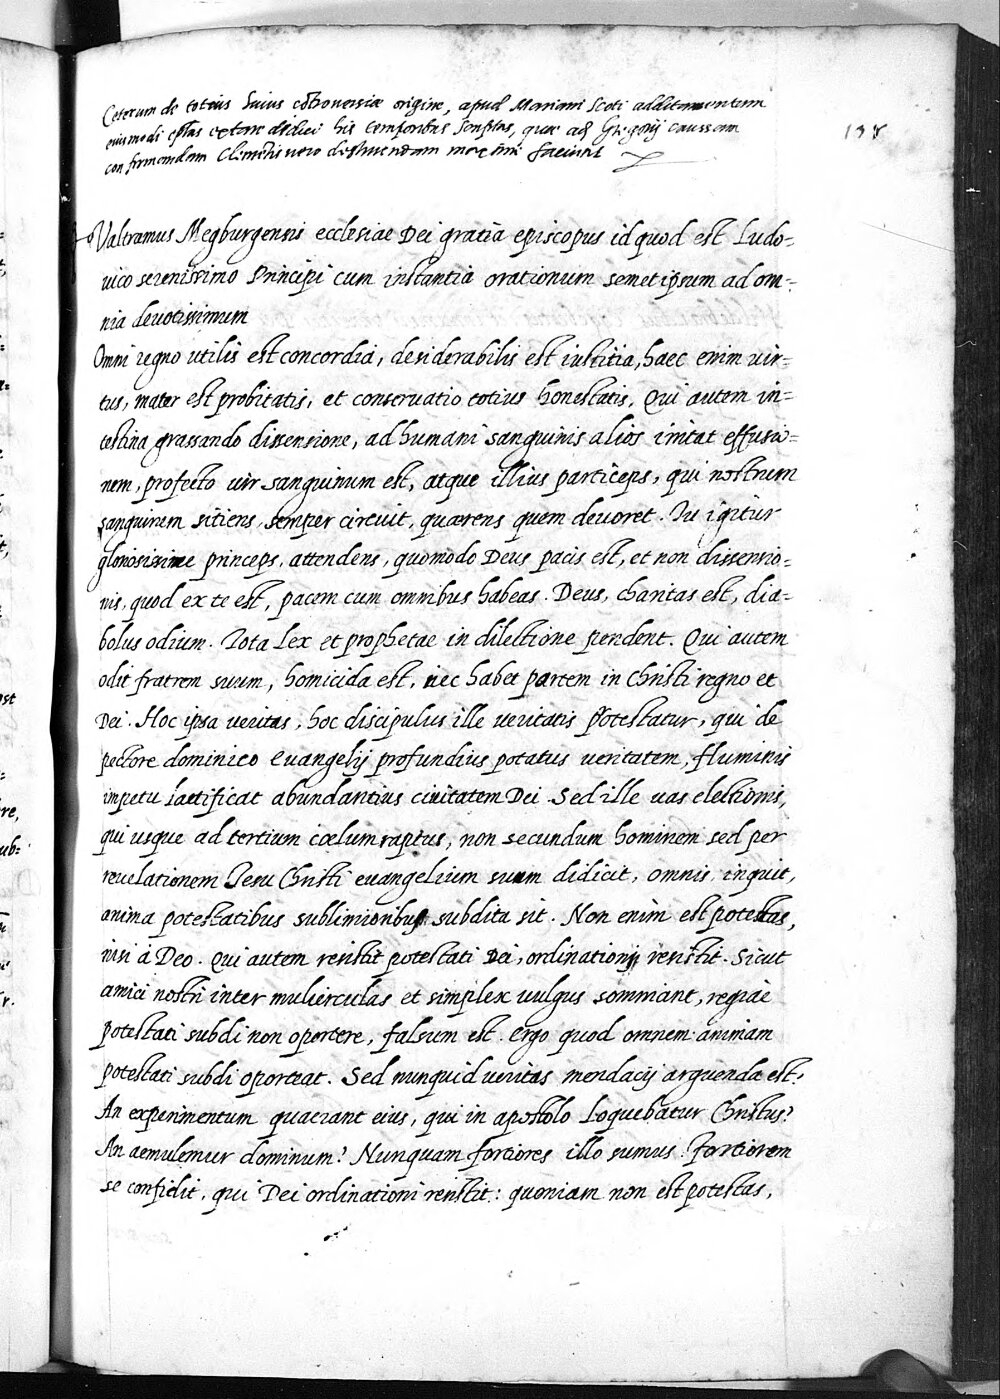 Ceterum de totius huius cõtrouersiae origine, apud Mariani Scoti additamentum
eiusmodi eplas vetere dedici his temporibus scriptas, quae ad Gregorij caussam
confirmandam Clementis uero destruendam maxime faciunt
Valtramus Megburgensis ecclesiae Dei gratia episcopus id quod est Ludo=
uico serenissimo Principi cum instantia orationum semetipsum ad om=
nia deuotissimum
Omni regno utilis est concordia, desiderabilis est iustitia, haec enim uir=
tus, mater est probitatis, et conseruatio totius honestatis. Qui autem in=
testina grassando dissensione, ad humani sanguinis alios irritat effusio=
nem, profecto uir sanguinum est, atque illius particeps, qui nostrum
sanguinem sitiens, semper circuit, quaerens quem deuoret. Tu igitur
gloriosissime princeps, attendens, quomodo Deus pacis est, et non dissensio=
nis, quod ex te est, pacem cum omnibus habeas. Deus, charitas est, dia=
bolus odium. Tota Lex et prophetae in dilectione pendent. Qui autem
odit fratrem suum, homicida est, nec habet partem in Christi regno et
Dei. Hoc ipsa veritas, hoc discipulus ille veritatis protestatur, qui de
pectore dominico euangelij profundius potatus veritatem, fluminis
impetu laetificat abundantius ciuitatem Dei. Sed ille uas electionis,
qui usque ad tertium coelum raptus, non secundum hominem sed per
reuelationem Iesu Christi euangelium suum didicit, omnis, inquit,
anima potestatibus sublimioribus subdita sit. Non enim est potestas,
nisi à Deo. Qui autem resistit potestati Dei, ordinationi resistit. Sicut
amici nostri inter mulierculas et simplex uulgus somniant, regiae
potestati subdi non oportere, falsum est. Ergo quod omnem animam
potestati subdi oporteat. Sed nunquid veritas mendacij arguenda est?
An experimentum quaerant eius, qui in apostolo loquebatur Christus?
An aemulemur dominum? Nunquam fortiores illo sumus? Fortiorem
se confidit, qui Dei ordinationi resistit: quoniam non est potestas,